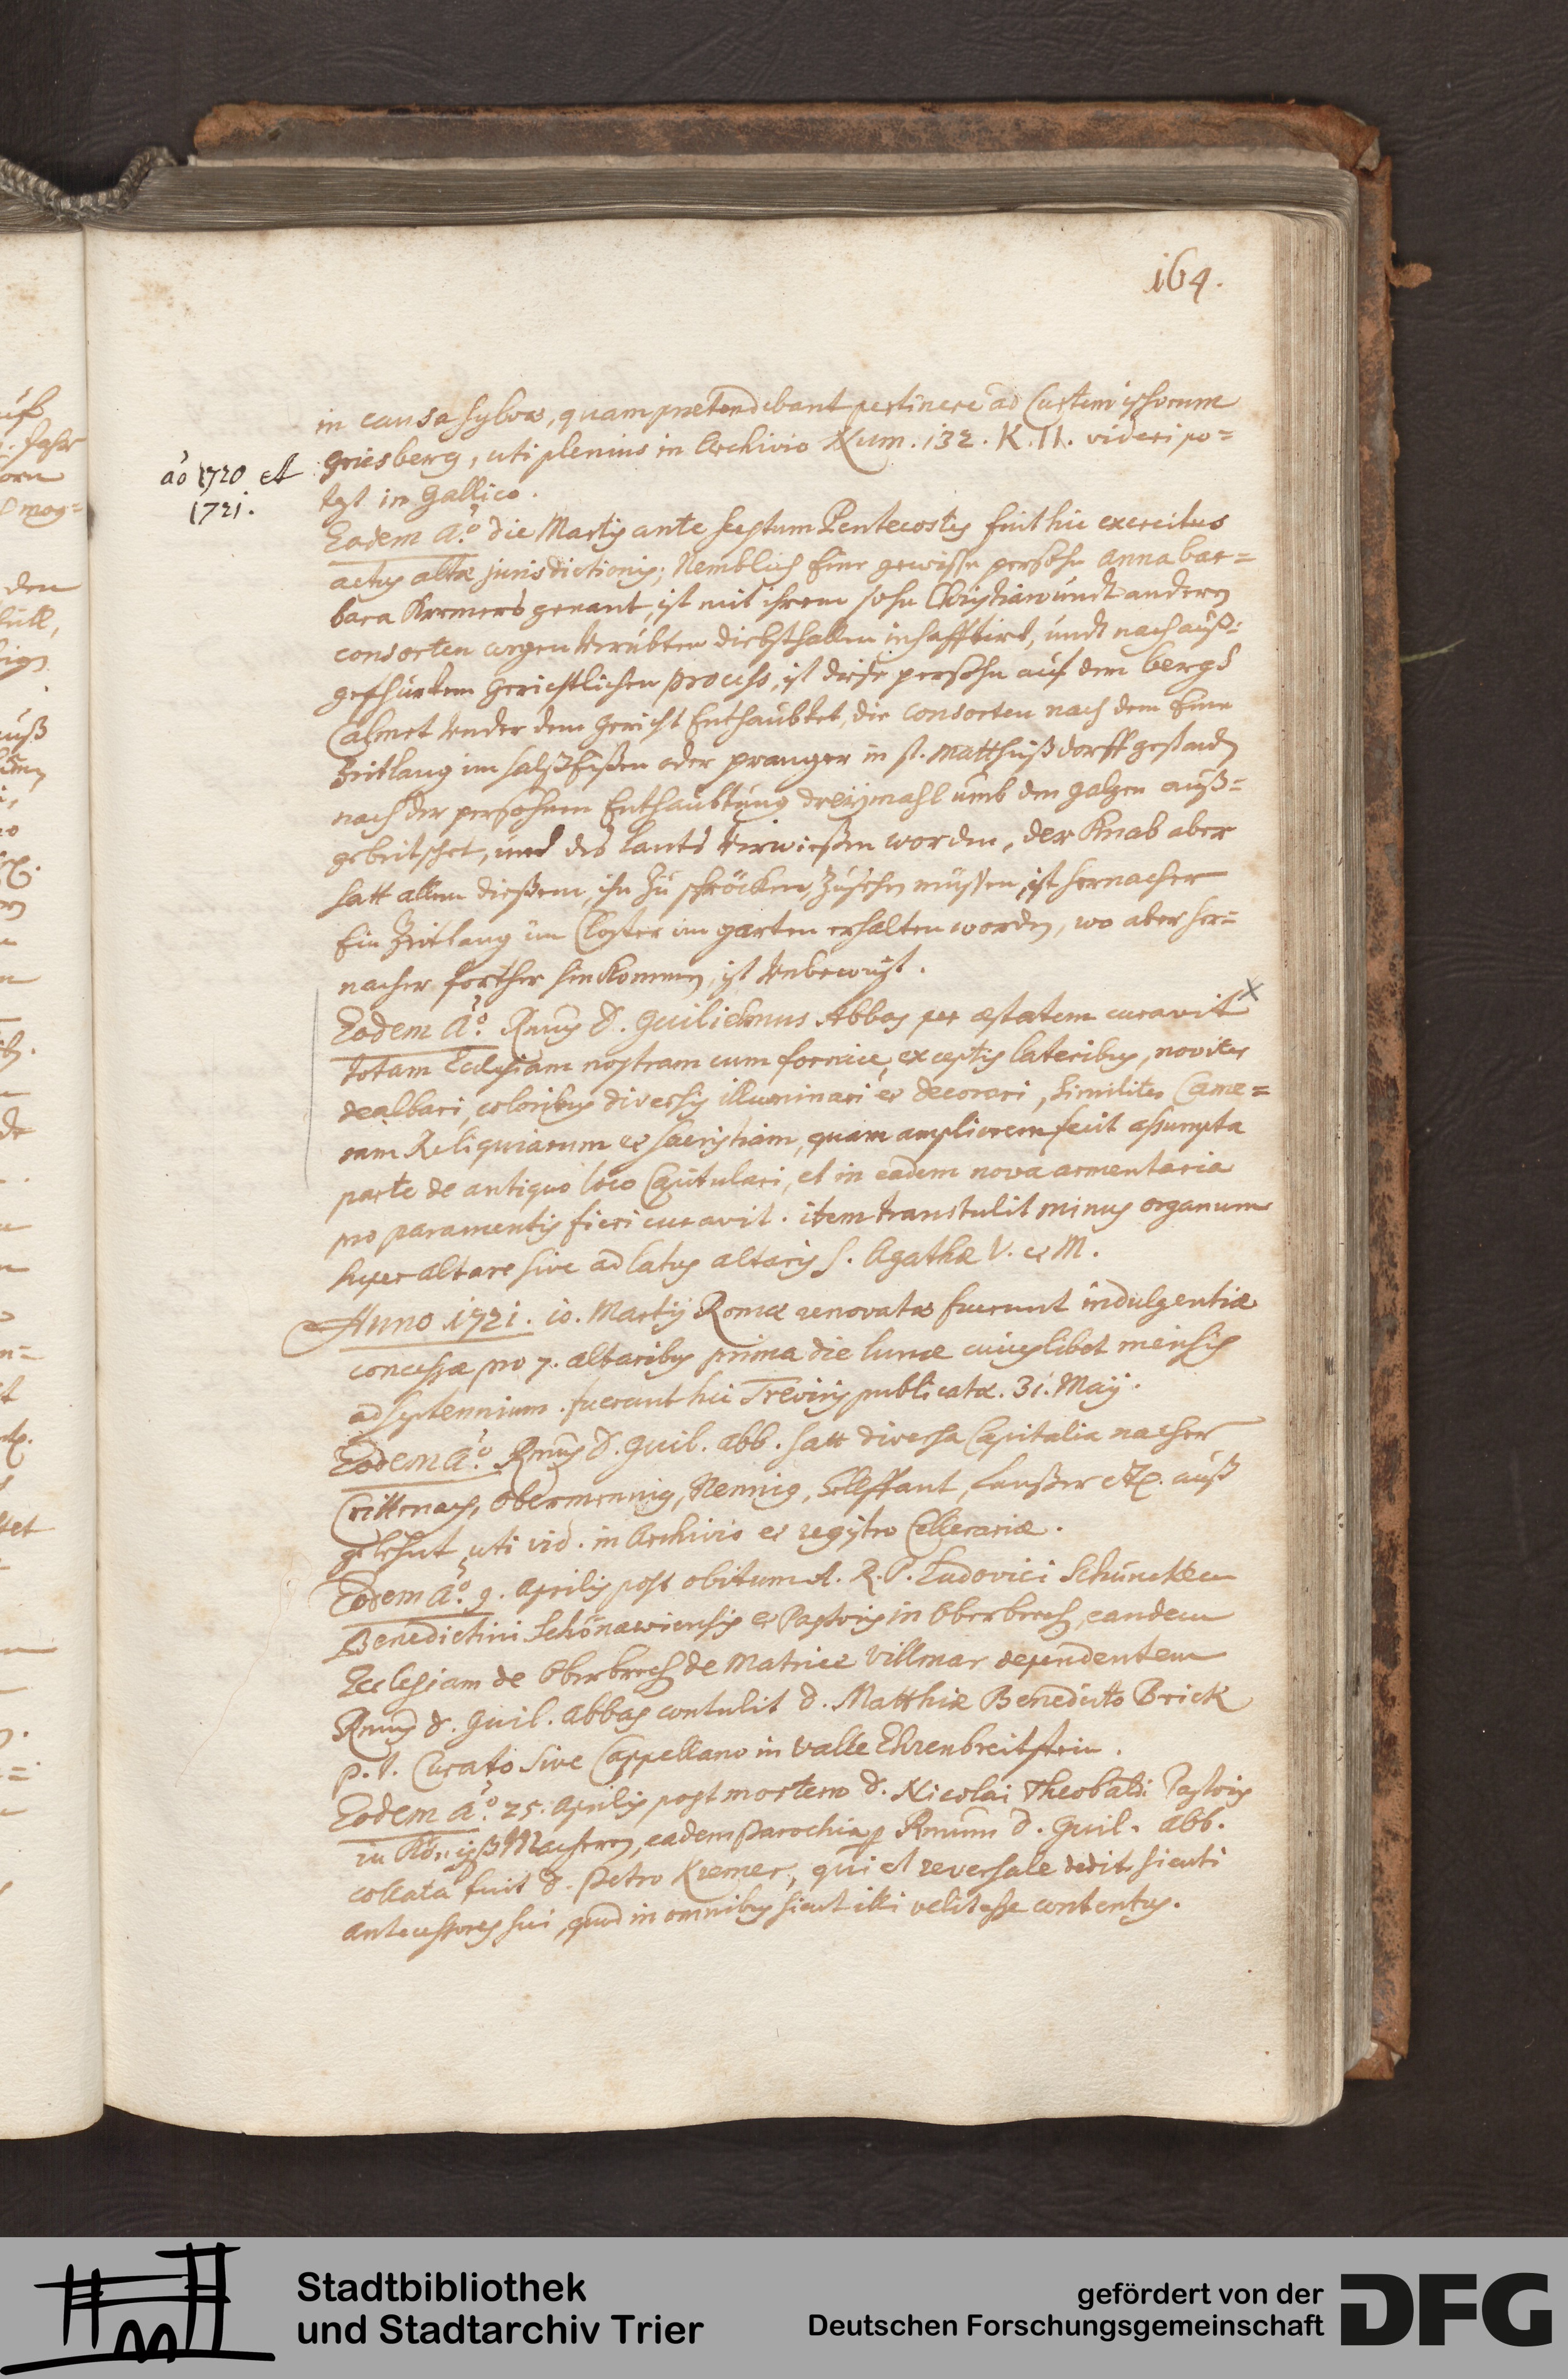 164.
in causa sylvæ, quam prætendebant pertinere ad Curtem ipsorum
Griesberg, uti plenius in Archivio Num. 132. K. 11. videri po=
test in Gallico.
aõ 1720 et
1721.
Eodem aõ. die Martis ante festum Pentecostes fuit hic exercitus
actus altæ jurisdictionis; Nemblich Eine gewisse persohn Anna bar=
bara Kremers genant, ist mit ihrem sohn Christian undt anderen
consorten wegen verübten diebsthallen inhafftirt, undt nach auß=
geführtem gerichtlichen process, ist diese persohn auf dem bergh
Calmet under dem gericht Enthaubtet, die consorten nach dem Eine
Zeitlang im halßEißen oder pranger in st. Matthiiß dorff gestanden
nach der persohnen Enthaubtung dreymahl umb den galgen auß=
gebeitschet, und des lants verwießen worden, der Knab aber
hatt allem dießem, ihn zu schröcken, zusehen müssen, ist hernacher
Ein Zeitlang im Closter im garten erhalten worden, wo aber her=
nacher forther hinkommen, ist unbewust.
Eodem aõ. Rmus D. Guilielmus Abbas per æstatem curavit
totam Ecclesiam nostram cum fornice, exceptis lateribus, noviter
dealbari, coloribus diversis illuminari et decorari, similiter Came=
ram Reliquiarum et sacristiam, quam ampliorem fecit assumpta
parte de antiquo loco Capitulari, et in eadem nova armentaria
pro paramentis fieri curavit. item transtulit minus organum
super altare sive ad latus altaris S. Agathæ V. et M.
Anno 1721. 10. Martij Romæ renovatæ fuerunt indulgentiæ
concessæ pro 7. altaribus prima die lunæ cuiuslibet mensis
ad septennium. fuerunt hic Treviris publicatæ. 31. Maij.
Eodem aõ. Rmus D. Guil. abb. hatt diversa Capitalia nacher
Crittenach, Obermennig, Nennig, Helffant, Laußer etc. auß
gelehnt, uti vid. in Archivio et registro Cellerariæ.
Eodem aõ. 9. aprilis post obitum A. R. P. Ludovici Schuncken
Benedictini Schönawiensis et Pastoris in Oberbrech, eandem
Ecclesiam de Oberbrech de Matrice Villmar dependentem
Rmus D. Guil. Abbas contulit D. Matthiæ Benedicto Brick
p. t. Curato sive Cappellano in valle Ehrenbreitstein.
Eodem aõ. 25. aprilis post mortem D. Nicolai Theobaldi Pastoris
in KönigßMacheren, eadem parochia p Rmum D. Guil. abb.
collata fuit D. Petro Kremer, qui et reversale dedit, sicuti
antecessores sui, quod in omnibus sicut illi velit esse contentus.
Stadtbibliothek
und Stadtarchiv Trier
gefördert von der
Deutschen Forschungsgemeinschaft
DFG